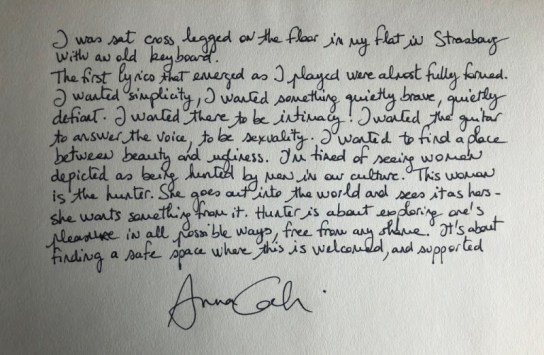 I was sat cross legged on the floor in my flat in Strasbourg
with an old keyboard.
The first lyrics that emerged as I played were almost fully formed.
I wanted simplicity, I wanted something quietly brave, quietly
defiant. I wanted there to be intimacy! I wanted the guitar
to answer the voice, to be sexuality. I wanted to find a place
between beauty and ugliness. I'm tired of seeing women
depicted as being hunted by men in our culture. This woman
is the hunter. She goes out into the world and sees it as hers -
she wants something from it. Hunter is about exploring one's
pleasure in all possible ways, free from any shame. It's about
finding a safe space where this is welcomed, and supported
Anna Calvi